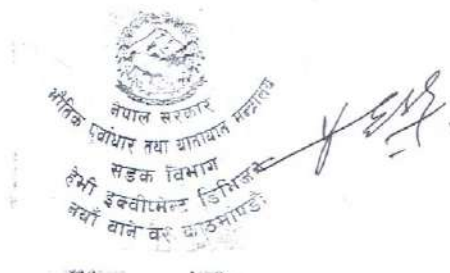 नेपाल सरकार
भौतिक पूर्वाधार तथा यातायात मन्त्रालय
सडक विभाग
हेभी इक्वीपमेन्ट डिभिजन
नयाँ वानेश्वर, काठमाण्डौ